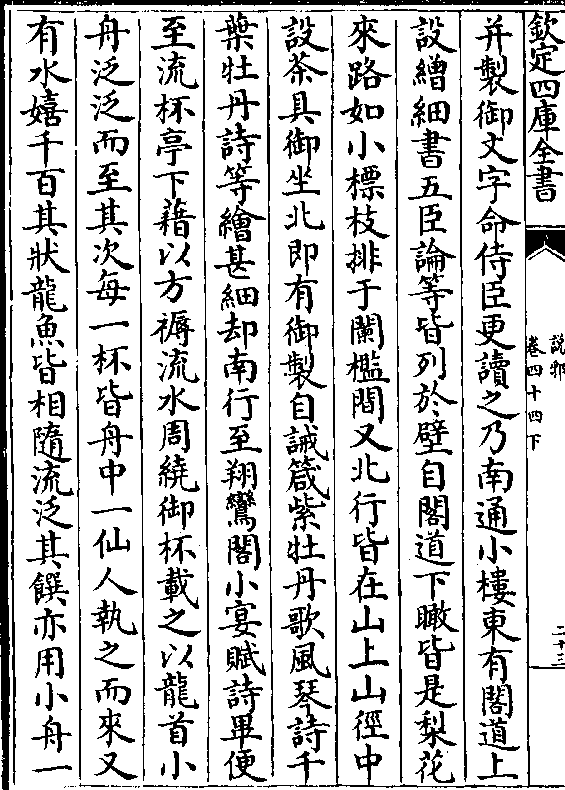 欽定四庫全書
說郛
卷四十四下
二十三
并製御文字命侍臣更讀之乃南通小樓東有閣道上
設繒細書五臣論等皆列於壁自閣道下瞰皆是梨花
來路如小標枝排于闌檻間又北行皆在山上山徑中
設茶具御坐北即有御製自誡箴紫牡丹歌風琴詩千
葉牡丹詩等繪甚細却南行至翔鸞閣小宴賦詩畢便
至流杯亭下藉以方褥流水周繞御杯載之以龍首小
舟泛泛而至其次每一杯皆舟中一仙人執之而來又
有水嬉千百其狀龍魚皆相隨流泛其饌亦用小舟一